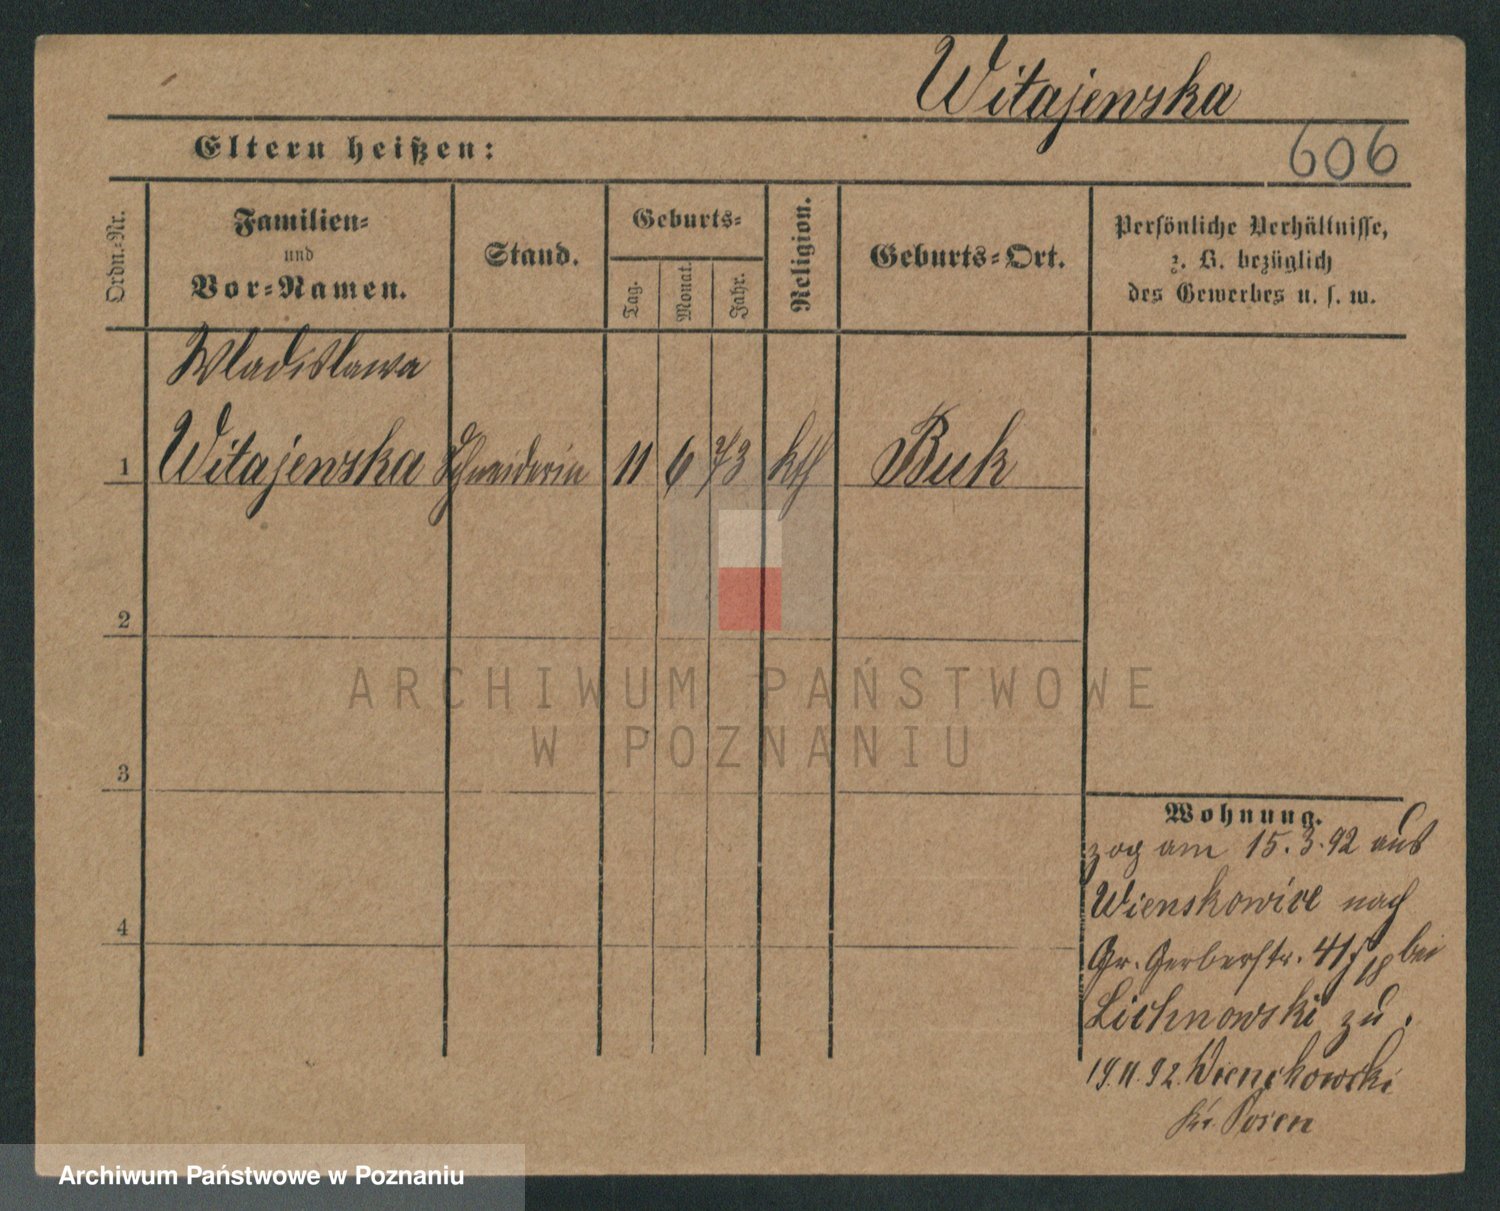 Witajewska
606
Eltern heißen:
Ordn.=Nr.
Familien=
und
Vor=Namen.
Stand.
Geburts=
Tag.
Monat.
Jahr.
Religion.
Geburts=Ort.
Persönliche Verhältnisse,
z. B. bezüglich
des Gewerbes u. s. w.
Wladislawa
1 Witajewska Schneiderin 11 6 73 kth Buk
2
ARCHIWUM PAŃSTWOWE
W POZNANIU
3
4
Wohnung.
zog am 15.3.92 aus
Wienskowice nach
Gr. Gerberstr. 41 bei
Lichnowski zu.
92. Wienckowski
Kr. Posen
Archiwum Państwowe w Poznaniu